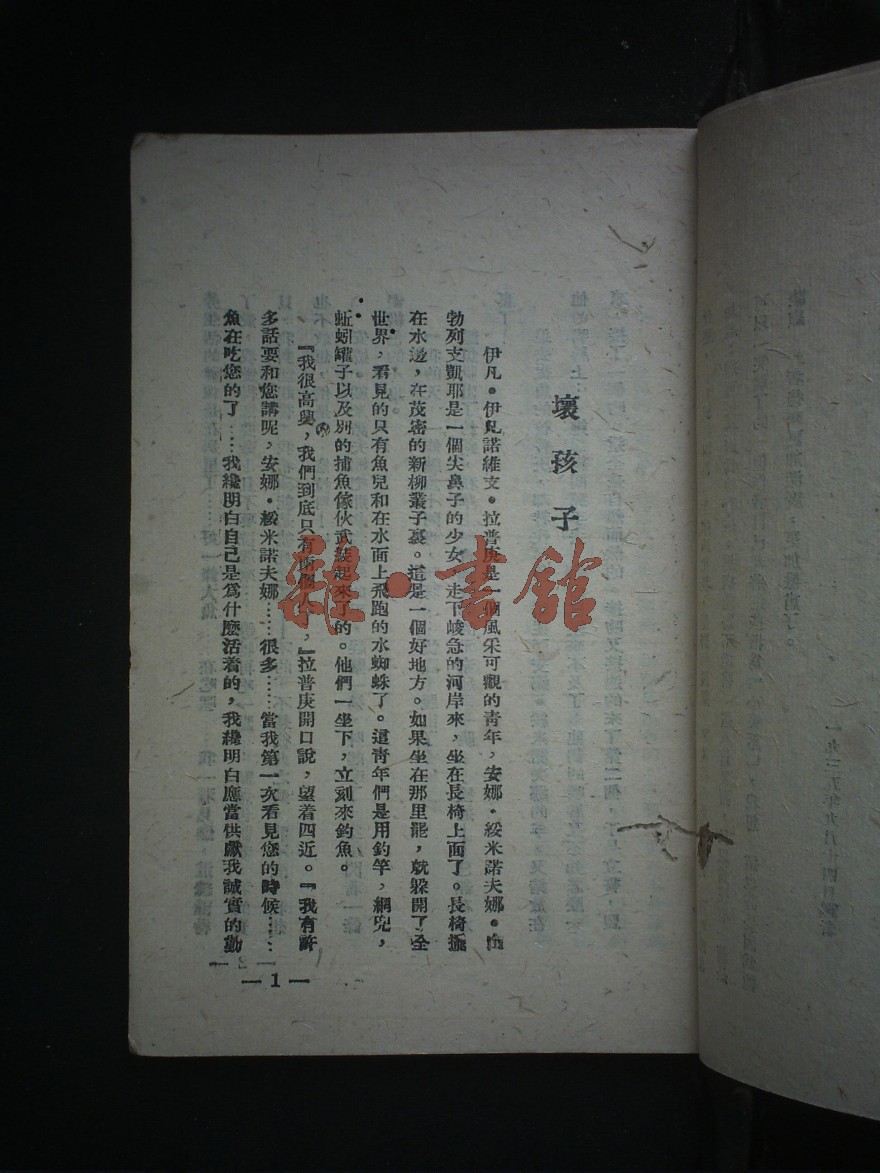 壞孩子
伊凡・伊凡諾維支・拉普庚是一個風采可觀的青年，安娜・綏米諾夫娜・山
勃列支凱耶是一個尖鼻子的少女，走下峻急的河岸來，坐在長椅上面了。長椅擺
在水邊，在茂密的新柳叢子裏。這是一個好地方。如果坐在那里罷，就躲開了全
世界，看見的只有魚兒和在水面上飛跑的水蜘蛛了。這青年們是用釣竿，網兜，
蚯蚓罐子以及別的捕魚傢伙武裝起來了的。他們一坐下，立刻來釣魚。
『我很高興，我們到底只有兩個人了，』拉普庚開口說，望着四近。『我有許
多話要和您講呢，安娜・綏米諾夫娜……很多……當我第一次看見您的時候……
魚在吃您的了……我纔明白自己是爲什麼活着的，我纔明白應當供獻我誠實的勤
— 1 —
雜・書館